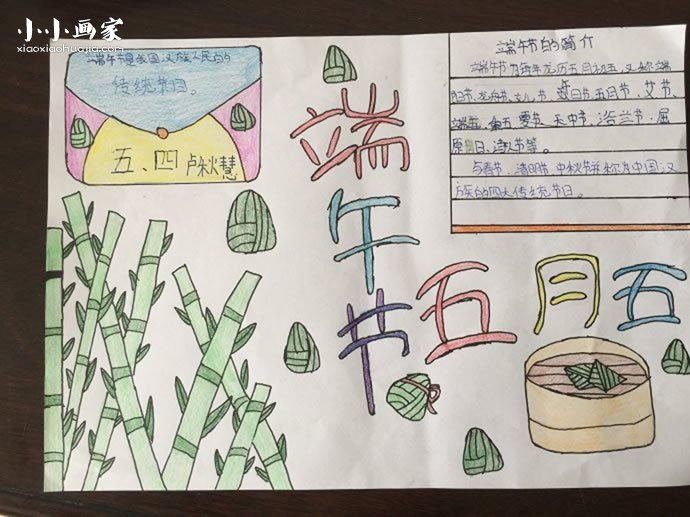 小小画家
xiaoxiaohuajia.com
端午节是我国汉族人民的
传统节日。
五、四 卢秋慧
端午节
五月五
端午节的简介
端午节为每年农历五月初五,又称端
阳节、龙舟节、女儿节、五日节、艾节、
端五、重五、夏节、天中节、浴兰节、屈
原日、诗人节等。
与春节、清明节、中秋节并称为中国汉
族的四大传统节日。